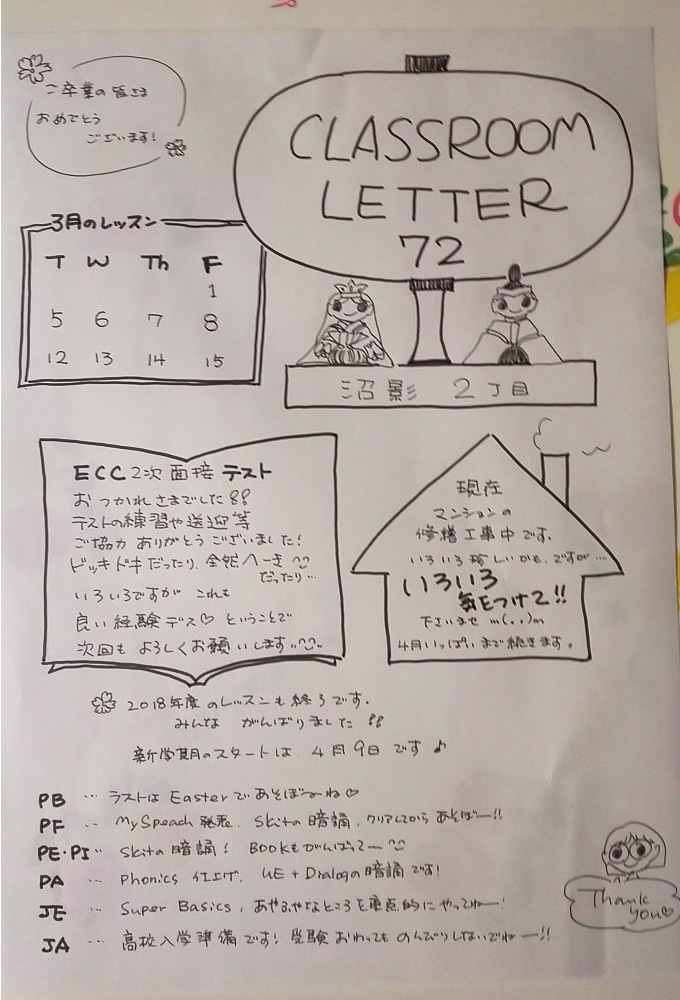 ご卒業の皆さま
おめでとう
ございます!
CLASSROOM
LETTER
72
3月のレッスン
T W Th F
1
5 6 7 8
12 13 14 15
沼影 2丁目
ECC 2次 面接 テスト
おつかれさまでした!!
テストの練習や送迎等
ご協力 ありがとうございました!
ドッキドキだったり、全然へーき
だったり…
いろいろですが これも
良い経験デス♡ ということで
次回も よろしくお願いします
現在
マンションの
修繕工事中です。
いろいろ珍しいかも、ですが…
いろいろ
気をつけて!!
下さいませ m(..)m
4月いっぱいまで続きます。
2018年度のレッスンも終ろです。
みんな がんばりました !!
新学期のスタートは 4月9日です♪
PB … ラストは Easterであそぼーね♡
PF … My Speach 発表、Skitの 暗誦、クリアしてから あそばー!!
PE・PI … Skitの 暗誦! BOOKもがんばってー
PA … Phonics 仕上げ、UE + Dialogの暗誦です!
JE … Super Basics, あやふやなところを重点的にやってねー!
JA … 高校入学準備です! 受験おわっても のんびりしないでねー!!
Thank
you♡